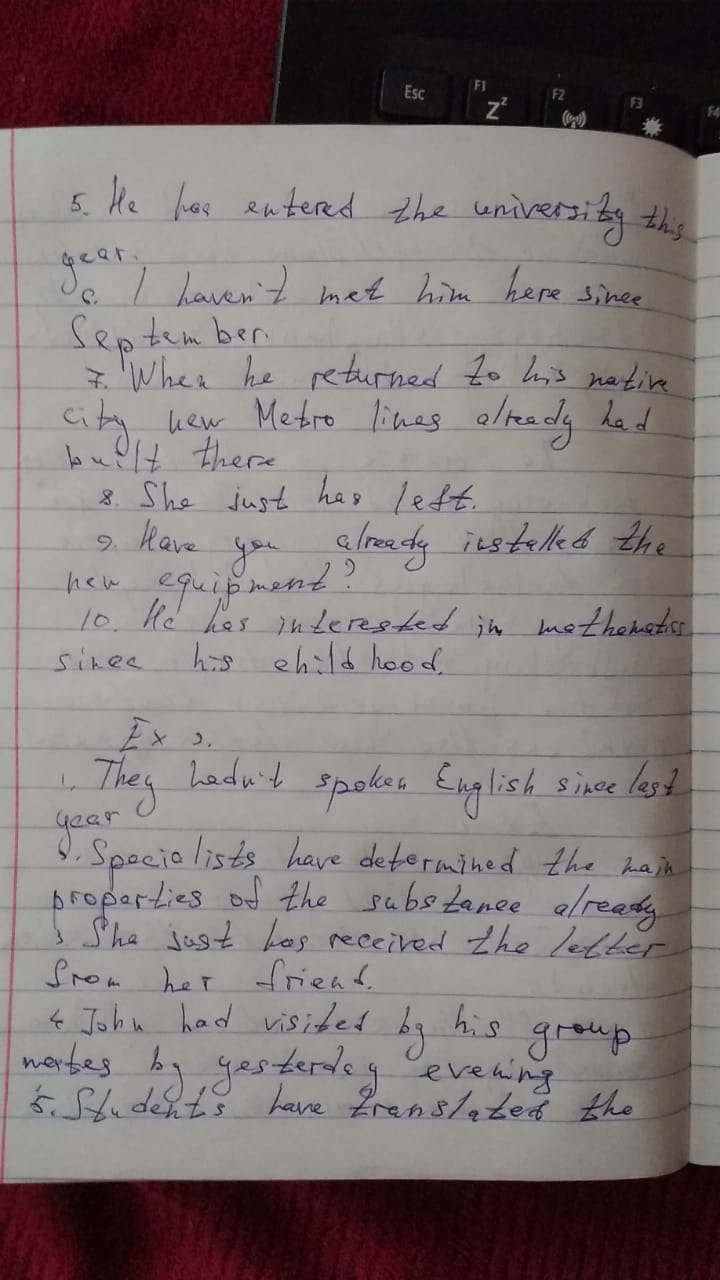 Esc
F1
Zz
F2
F3
F4
5. He has entered the university this
year.
6. I haven't met him here since
September.
7. When he returned to his native
city new Metro lines already had
built there
8. She just has left.
9. Have you already installed the
new equipment?
10. He has interested in mathematics
since his childhood.
Ex 2.
1. They hadn't spoken English since last
year
2. Specialists have determined the main
properties of the substance already
3 She just has received the letter
from her friend.
4 John had visited by his group
mates by yesterday evening
5. Students have translated the